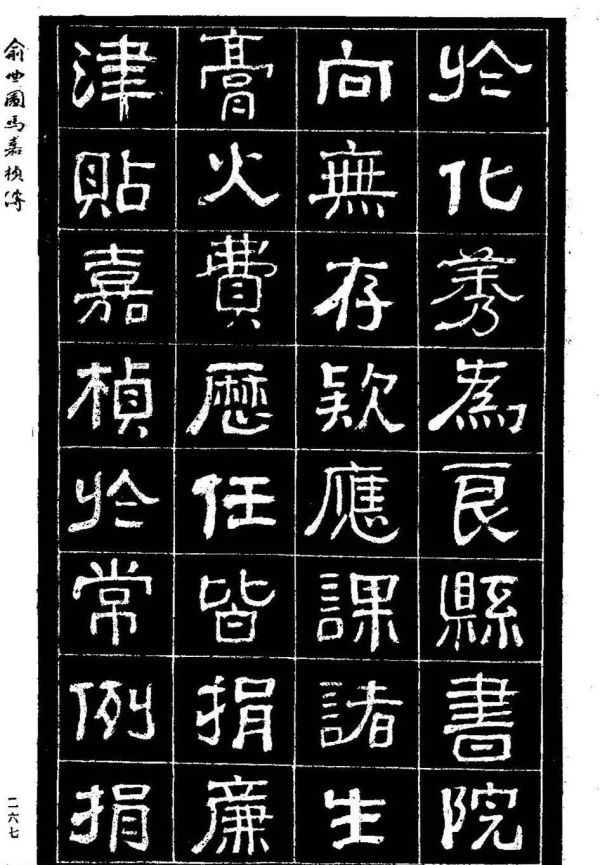 於化莠為良縣書院
向無存款應課諸生
膏火費歷任皆捐廉
津貼嘉楨於常例捐
俞世圃馬嘉楨傳
二六七